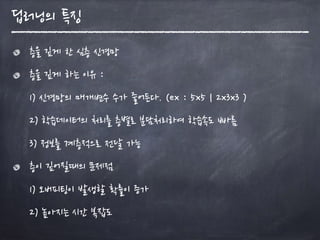 딥러닝의 특징
층을 깊게 한 심층 신경망
층을 깊게 하는 이유 :
1) 신경망의 매개변수 수가 줄어든다. (ex : 5x5 | 2x3x3 )
2) 학습데이터의 처리를 층별로 분담처리하여 학습속도 빠름
3) 정보를 계층적으로 전달 가능
층이 깊어질때의 문제점
1) 오버피팅이 발생할 확률이 증가
2) 높아지는 시간 복잡도